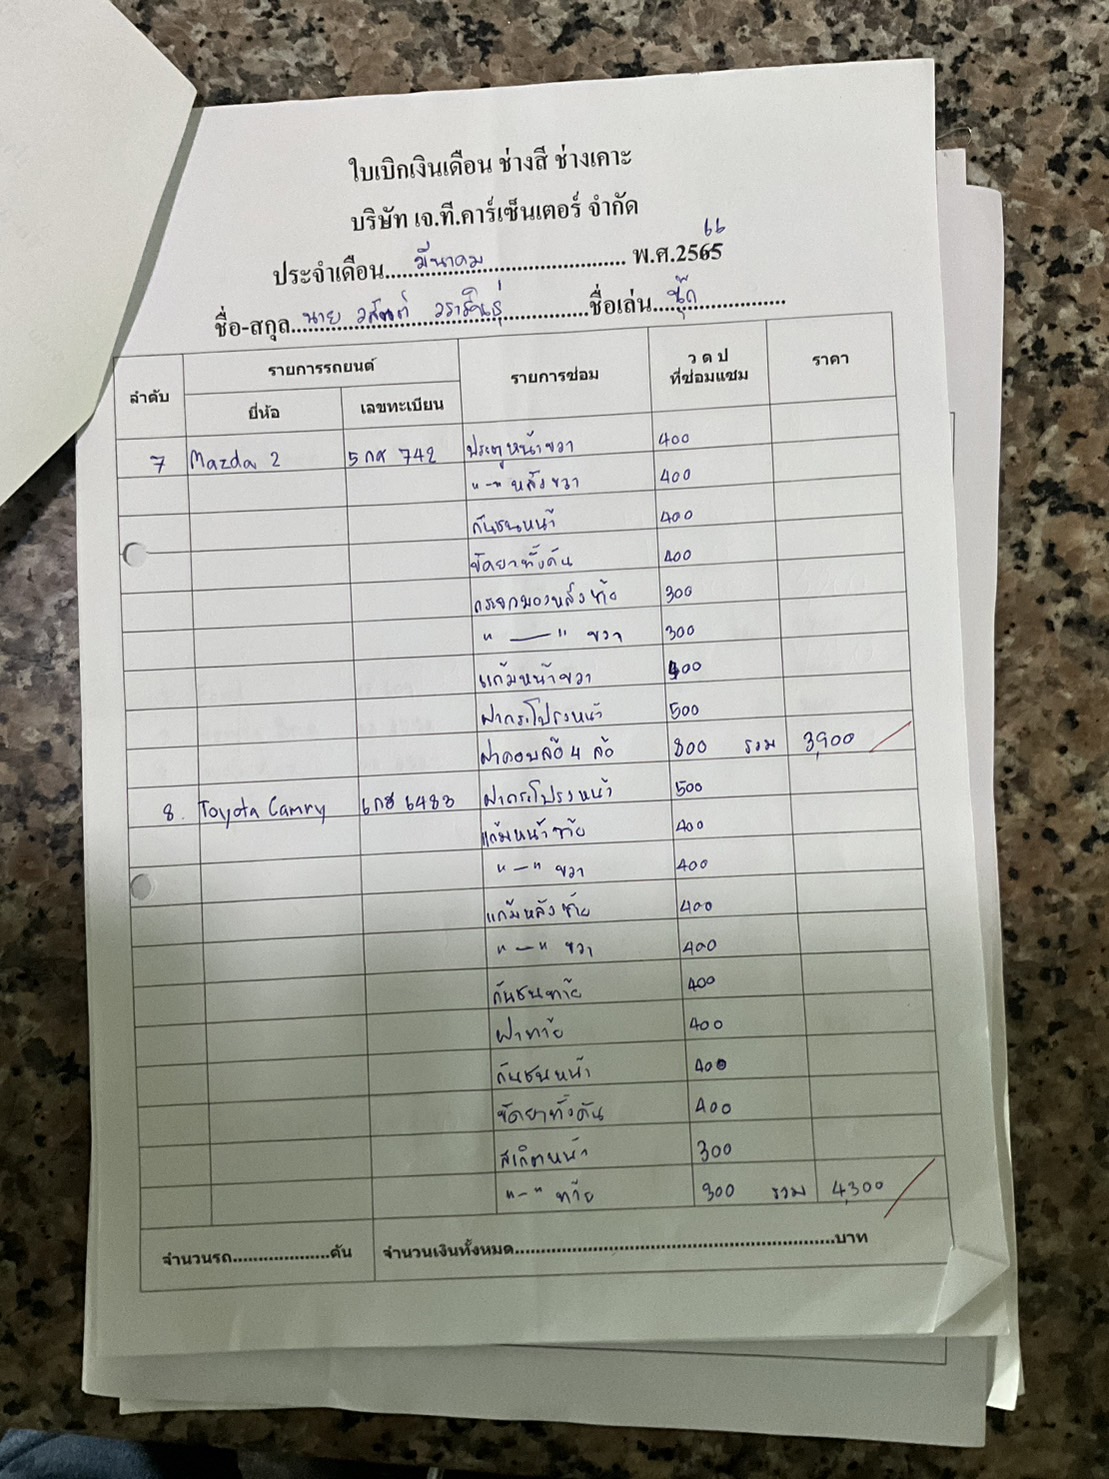 ใบเบิกเงินเดือน ช่างสี ช่างเคาะ
บริษัท เจ.ที.คาร์เซ็นเตอร์ จำกัด
66
ประจำเดือน....มีนาคม.................................. พ.ศ.2565
ชื่อ-สกุล..นาย วสันต์..................ชื่อเล่น...ซุ๊ก...............
ลำดับ รายการรถยนต์ รายการซ่อม ว ด ป ที่ซ่อมแซม ราคา
ยี่ห้อ เลขทะเบียน
7 Mazda 2 742 ประตูหน้าขวา 400
"-" หลังขวา 400
กันชนหน้า 400
ขัดยาทั้งคัน 400
กระจกมองหลังซ้าย 300
" — " ขวา 300
แก้มหน้าขวา 400
ฝากระโปรงหน้า 500
ฝาครอบล้อ 4 ล้อ 800 รวม 3,900
8. Toyota Camry 6483 ฝากระโปรงหน้า 500
แก้มหน้าซ้าย 400
"-" ขวา 400
แก้มหลังซ้าย 400
"-" ขวา 400
กันชนท้าย 400
ฝาท้าย 400
กันชนหน้า 400
ขัดยาทั้งคัน 400
สเกิตหน้า 300
"-" ท้าย 300 รวม 4,300
จำนวนรถ...................คัน จำนวนเงินทั้งหมด...............................................................บาท